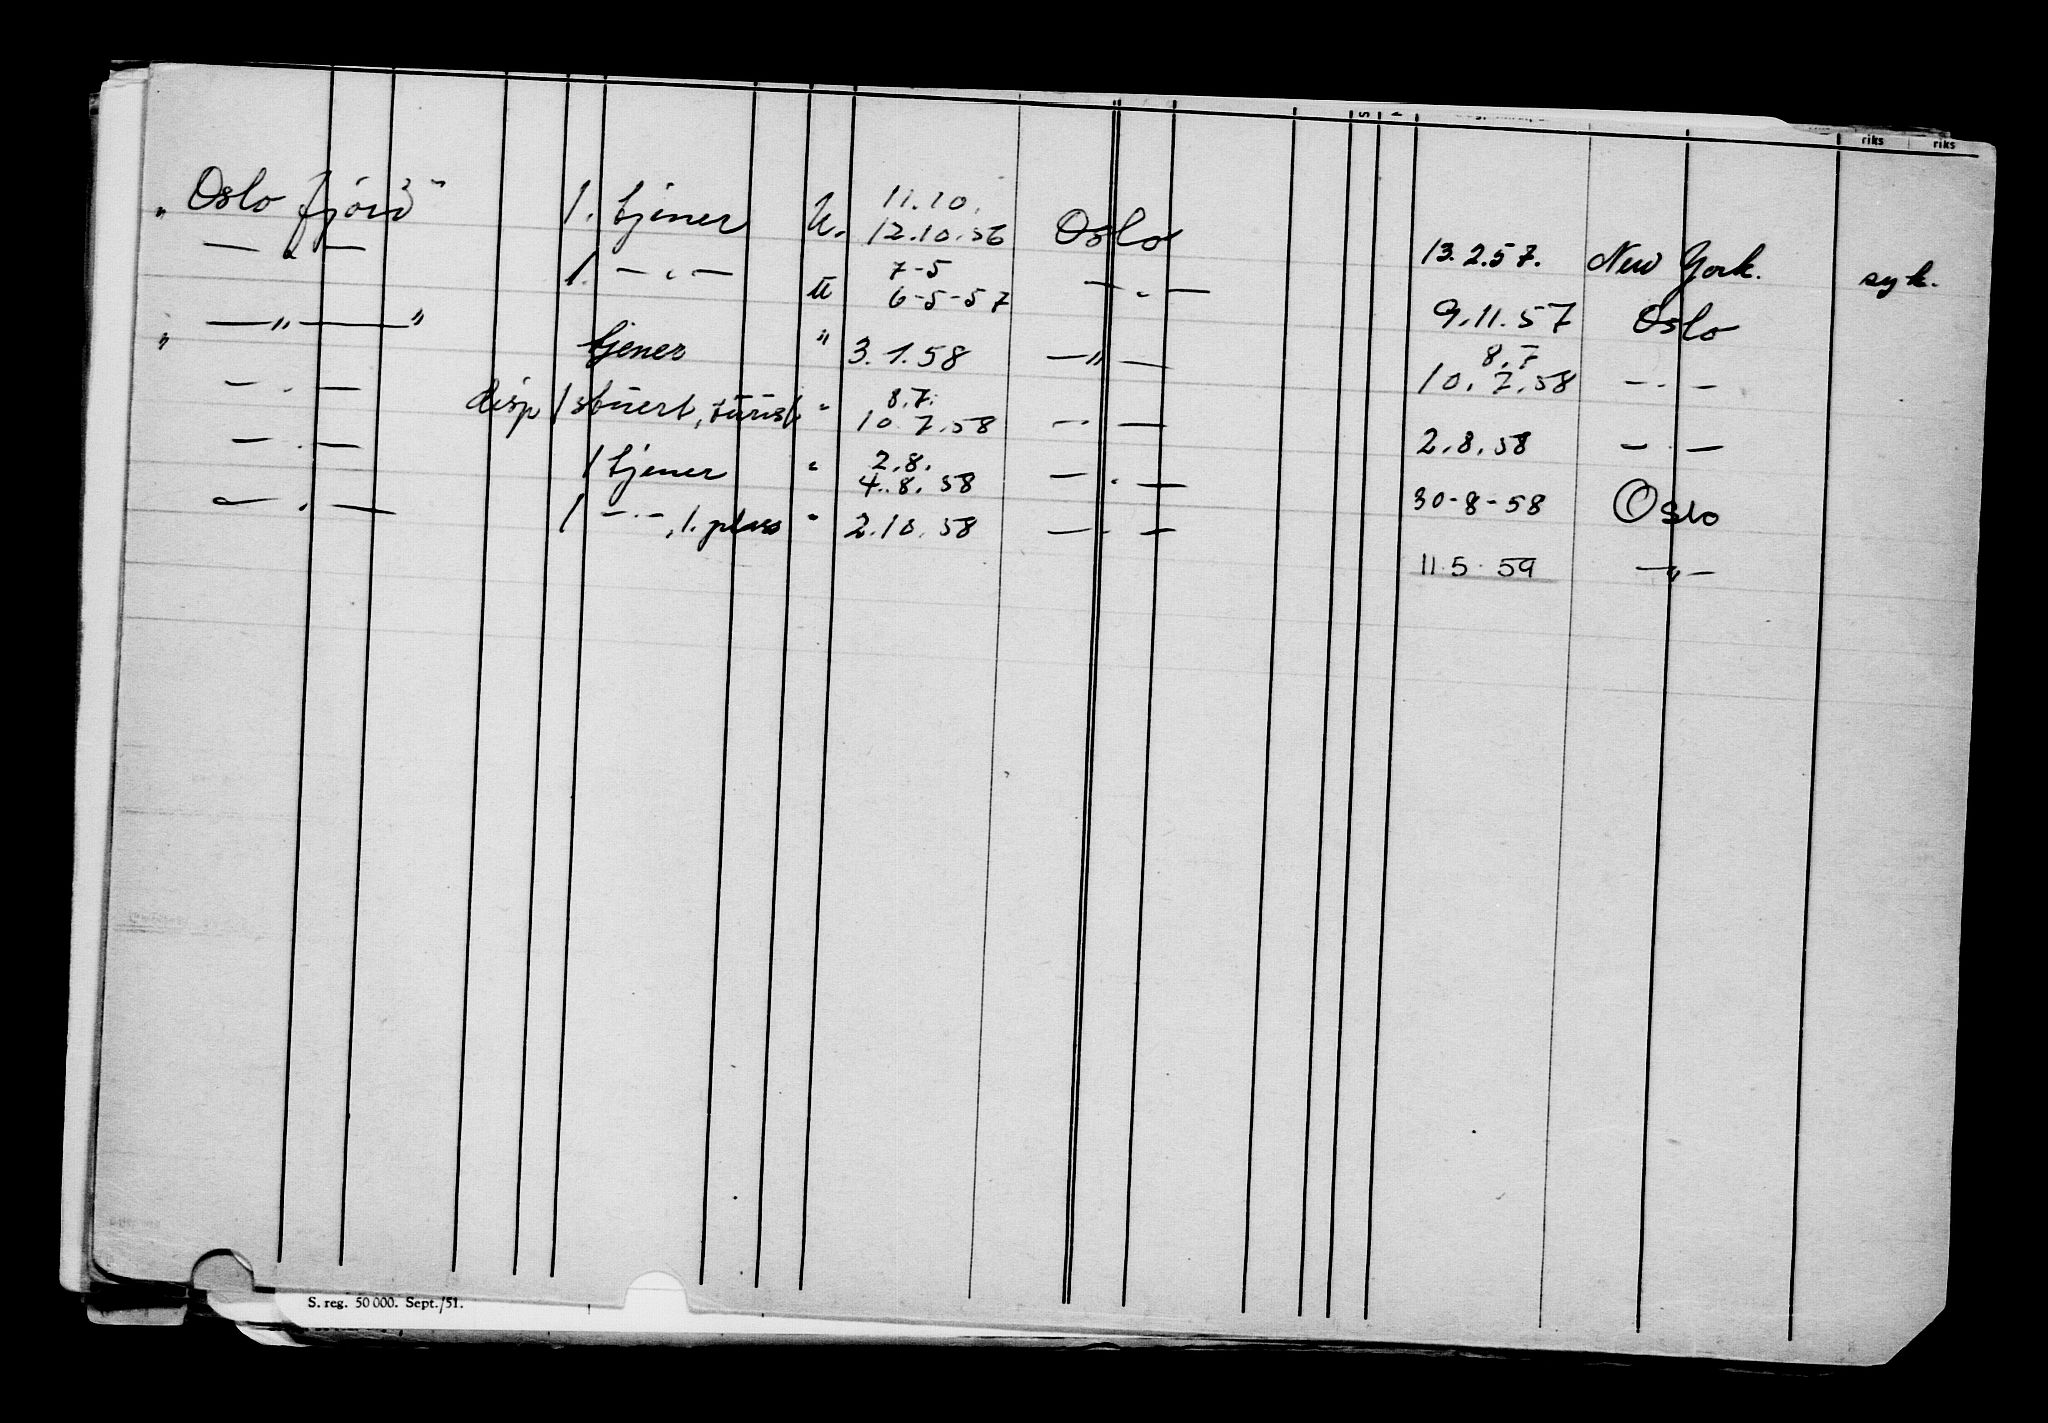 riks riks
„Oslo fjord" 1. tjener U. 11.10. 12.10.56 Oslo 13.2.57. New York. syk.
— „ — 1. — „ — U 7-5 6-5-57 — „ — 9.11.57 Oslo
„ — „ — " tjener " 3.1.58 — „ — 8.7 10.7.58 — . —
— . — disp 1 stuert, turist " 8.7. 10.7.58 — . — 2.8.58 — . —
— . — 1 tjener " 2.8. 4.8.58 — . — 30-8-58 Oslo
— . — 1 — . —, 1. plass " 2.10.58 — . — 11.5.59 — „ —
S. reg. 50 000. Sept./51.